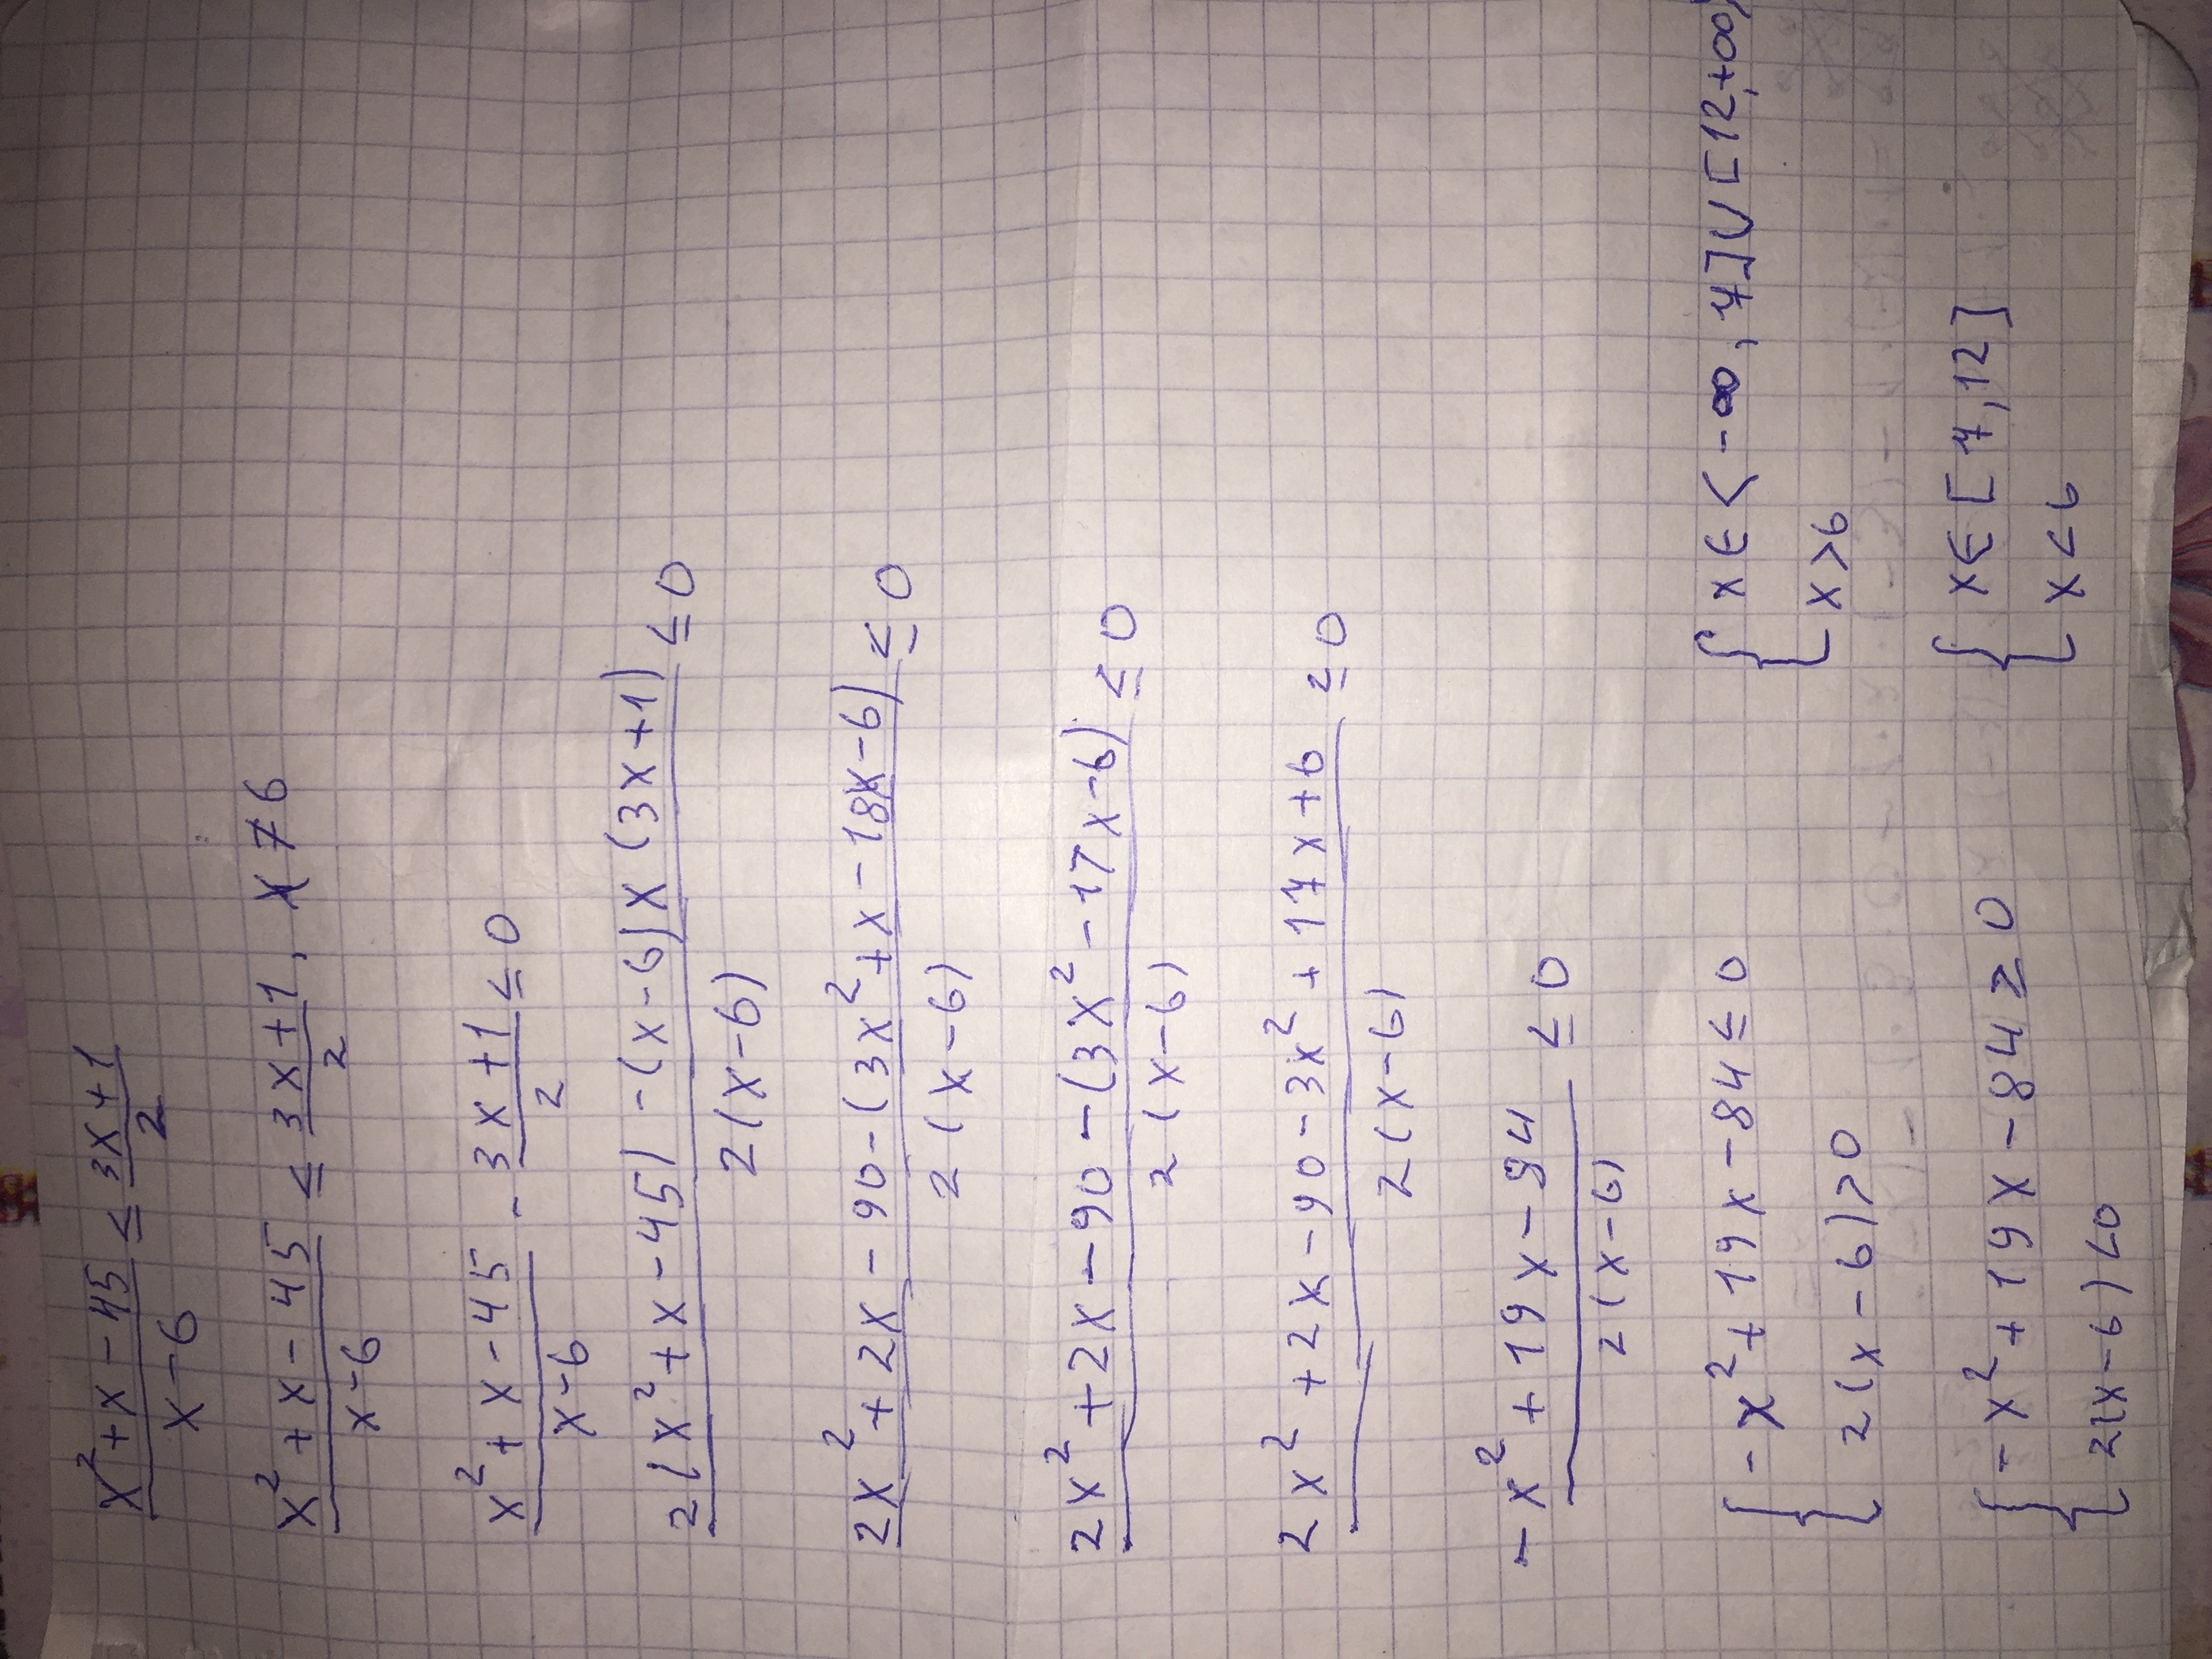 x²+x-45/x-6 ≤ 3x+1/2
x²+x-45/x-6 ≤ 3x+1/2, x≠6
x²+x-45/x-6 - 3x+1/2 ≤ 0
2(x²+x-45)-(x-6)x(3x+1)/2(x-6) ≤ 0
2x²+2x-90-(3x²+x-18x-6)/2(x-6) ≤ 0
2x²+2x-90-(3x²-17x-6)/2(x-6) ≤ 0
2x²+2x-90-3x²+17x+6/2(x-6) ≤ 0
-x²+19x-94/2(x-6) ≤ 0
{-x²+19x-84≤0 {x∈<-∞,7]U[12,+∞)
2(x-6)>0 x>6
{-x²+19x-84≥0 {x∈[7,12]
2(x-6)<0 x<6